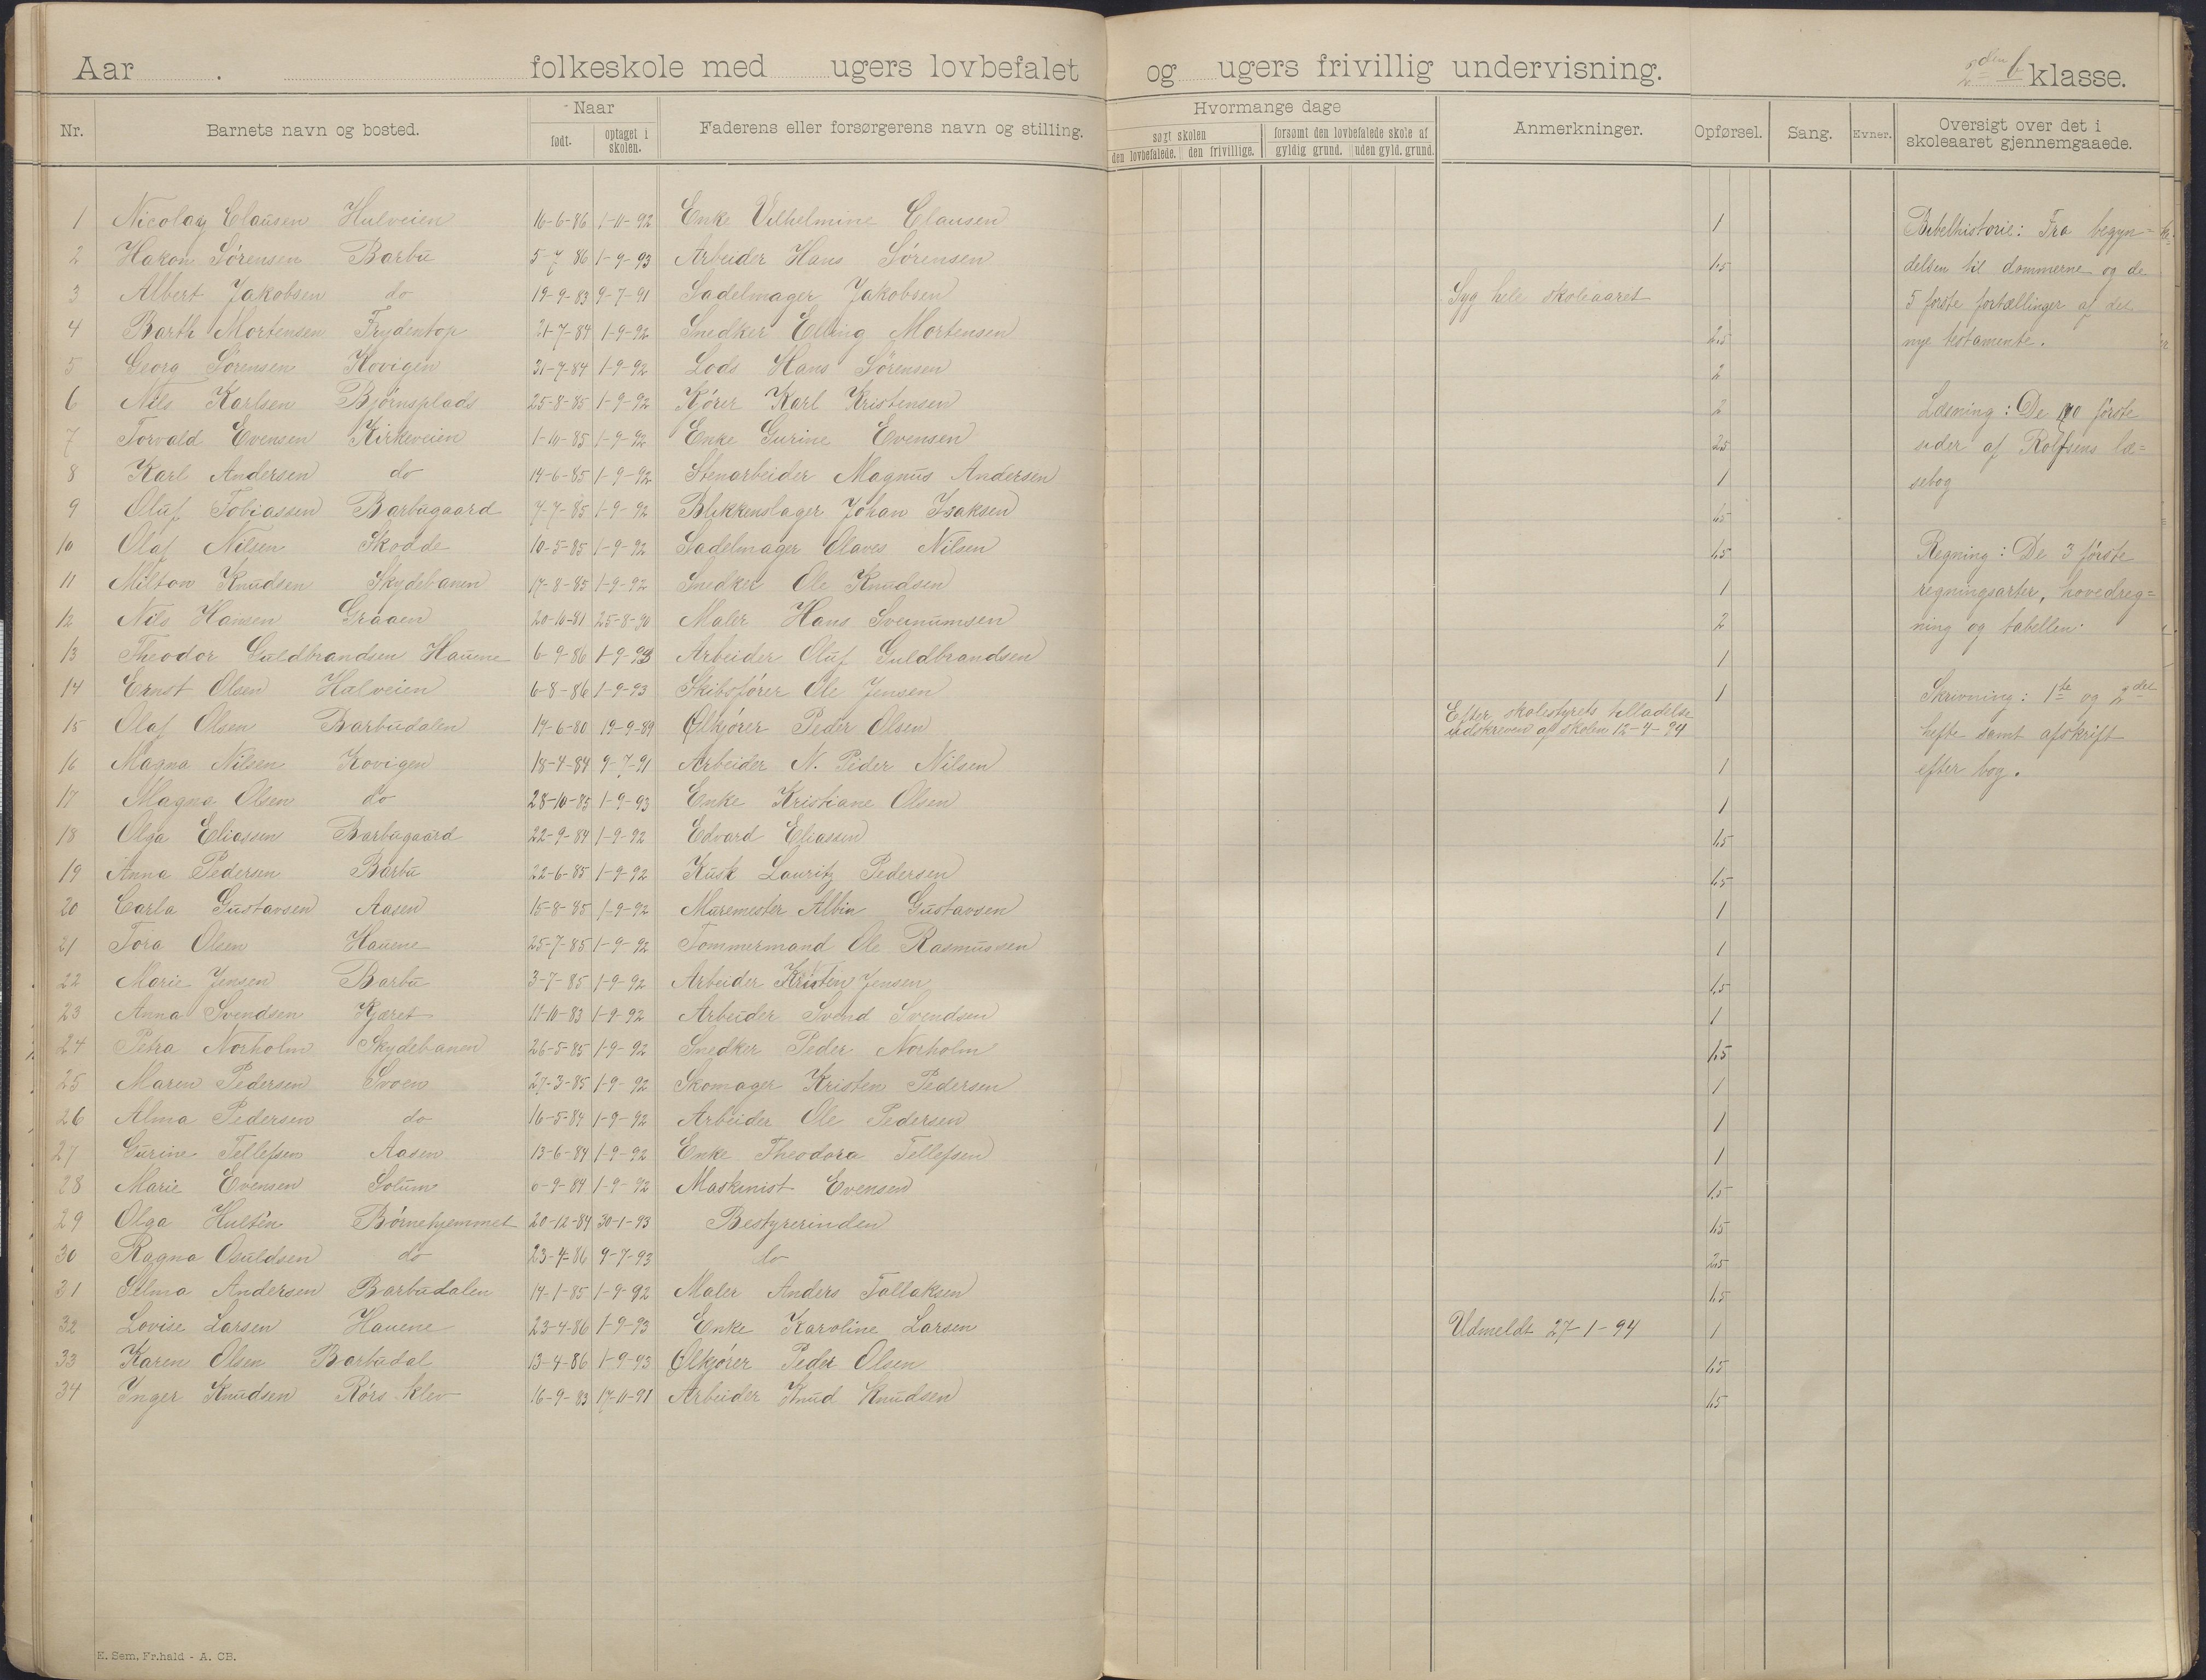 Aar . folkeskole med ugers lovbefalet og ugers frivillig undervisning. 2den b klasse.
Nr. Barnets navn og bosted. Naar født. optaget i skolen. Faderens eller forsørgerens navn og stilling. Hvormange dage søgt skolen den lovbefalede. den frivillige. forsømt den lovbefalede skole af gyldig grund. uden gyld. grund. Anmerkninger. Opførsel. Sang. Evner. Oversigt over det i skoleaaret gjennemgaaede.
1 Nicolay Clausen Hulveien 16-6-86 1-11-92 Enke Vilhelmine Clausen 1
2 Hakon Sørensen Barbu 5-7 86 1-9-93 Arbeider Hans Sørensen 1.5
3 Albert Jakobsen do 19-9-83 9-7-91 Sadelmager Jakobsen Syg hele skoleaaret
4 Barth Mortensen Frydentop 21-7-84 1-9-92 Snedker Elling Mortensen 2.5
5 Georg Sørensen Kovigen 31-7-84 1-9-92 Lods Hans Sørensen 2
6 Nils Karlsen Bjørnsplads 25-8-85 1-9-92 Kjører Karl Kristensen 2
7 Torvald Evensen Kirkeveien 1-10-85 1-9-92 Enke Gurine Evensen 2.5
8 Karl Andersen do 14-6-85 1-9-92 Stenarbeider Magnus Andersen 1
9 Oluf Tobiassen Barbugaard 7-7-85 1-9-92 Blikkenslager Johan Isaksen 1.5
10 Olaf Nilsen Skodde 10-5-85 1-9-92 Sadelmager Olaves Nilsen 1.5
11 Milton Knudsen Skydebanen 17-8-85 1-9-92 Snedker Ole Knudsen 1
12 Nils Hansen Graaen 20-10-81 25-8-90 Maler Hans Sveinumsen 2
13 Theodor Guldbrandsen Hauene 6-9-86 1-9-93 Arbeider Oluf Guldbrandsen 1
14 Ernst Olsen Halveien 6-8-86 1-9-93 Skibsfører Ole Jensen 1
15 Olaf Olsen Barbudalen 14-6-80 19-9-89 Ølkjører Peder Olsen Efter skolestyrets tilladelse
udskreven af skolen 12-4-94
16 Magna Nilsen Kovigen 18-4-84 9-7-91 Arbeider N. Peder Nilsen 1
17 Magna Olsen do 28-10-85 1-9-93 Enke Kristiane Olsen 1
18 Olga Eliassen Barbugaard 22-9-84 1-9-92 Edvard Eliassen 1.5
19 Anna Pedersen Barbu 22-6-85 1-9-92 Kusk Lauritz Pedersen 1.5
20 Carla Gustavsen Aasen 15-8-85 1-9-92 Muremester Albin Gustavsen 1
21 Tora Olsen Hauene 25-7-85 1-9-92 Tømmermand Ole Rasmussen 1
22 Marie Jensen Barbu 3-7-85 1-9-92 Arbeider Kristen Jensen 1.5
23 Anna Svendsen Kjæret 11-10-83 1-9-92 Arbeider Svend Svendsen 1
24 Petra Norholm Skydebanen 26-5-85 1-9-92 Snedker Peder Norholm 1.5
25 Maren Pedersen Svoen 27-3-85 1-9-92 Skomager Kristen Pedersen 1
26 Alma Pedersen do 16-5-84 1-9-92 Arbeider Ole Pedersen 1
27 Gurine Tellefsen Aasen 13-6-84 1-9-92 Enke Theodora Tellefsen 1
28 Marie Evensen Solum 6-9-84 1-9-92 Maskinist Evensen 1.5
29 Olga Hultén Børnehjemmet 20-12-84 30-1-93 Bestyrerinden 1.5
30 Ragna Osuldsen do 23-4-86 9-7-93 do 2.5
31 Selma Andersen Barbudalen 14-1-85 1-9-92 Maler Anders Tallaksen 1.5
32 Lovise Larsen Hauene 23-4-86 1-9-93 Enke Karoline Larsen Udmeldt 27-1-94 1
33 Karen Olsen Barbudal 13-4-86 1-9-93 Ølkjører Peder Olsen 1.5
34 Inger Knudsen Rørs klev 16-9-83 17-11-91 Arbeider Knud Knudsen 1.5
Bibelhistorie: Fra begyn=
delsen til dommerne og de
5 første fortællinger af det
nye testamente.
Læsning: De 90 første
sider af Rolfsens læ=
sebog
Regning: De 3 første
regningsarter, hovedreg=
ning og tabellen.
Skrivning: 1ste og 2det
hefte samt afskrift
efter bog.
E. Sem, Fr.hald - A. CB.